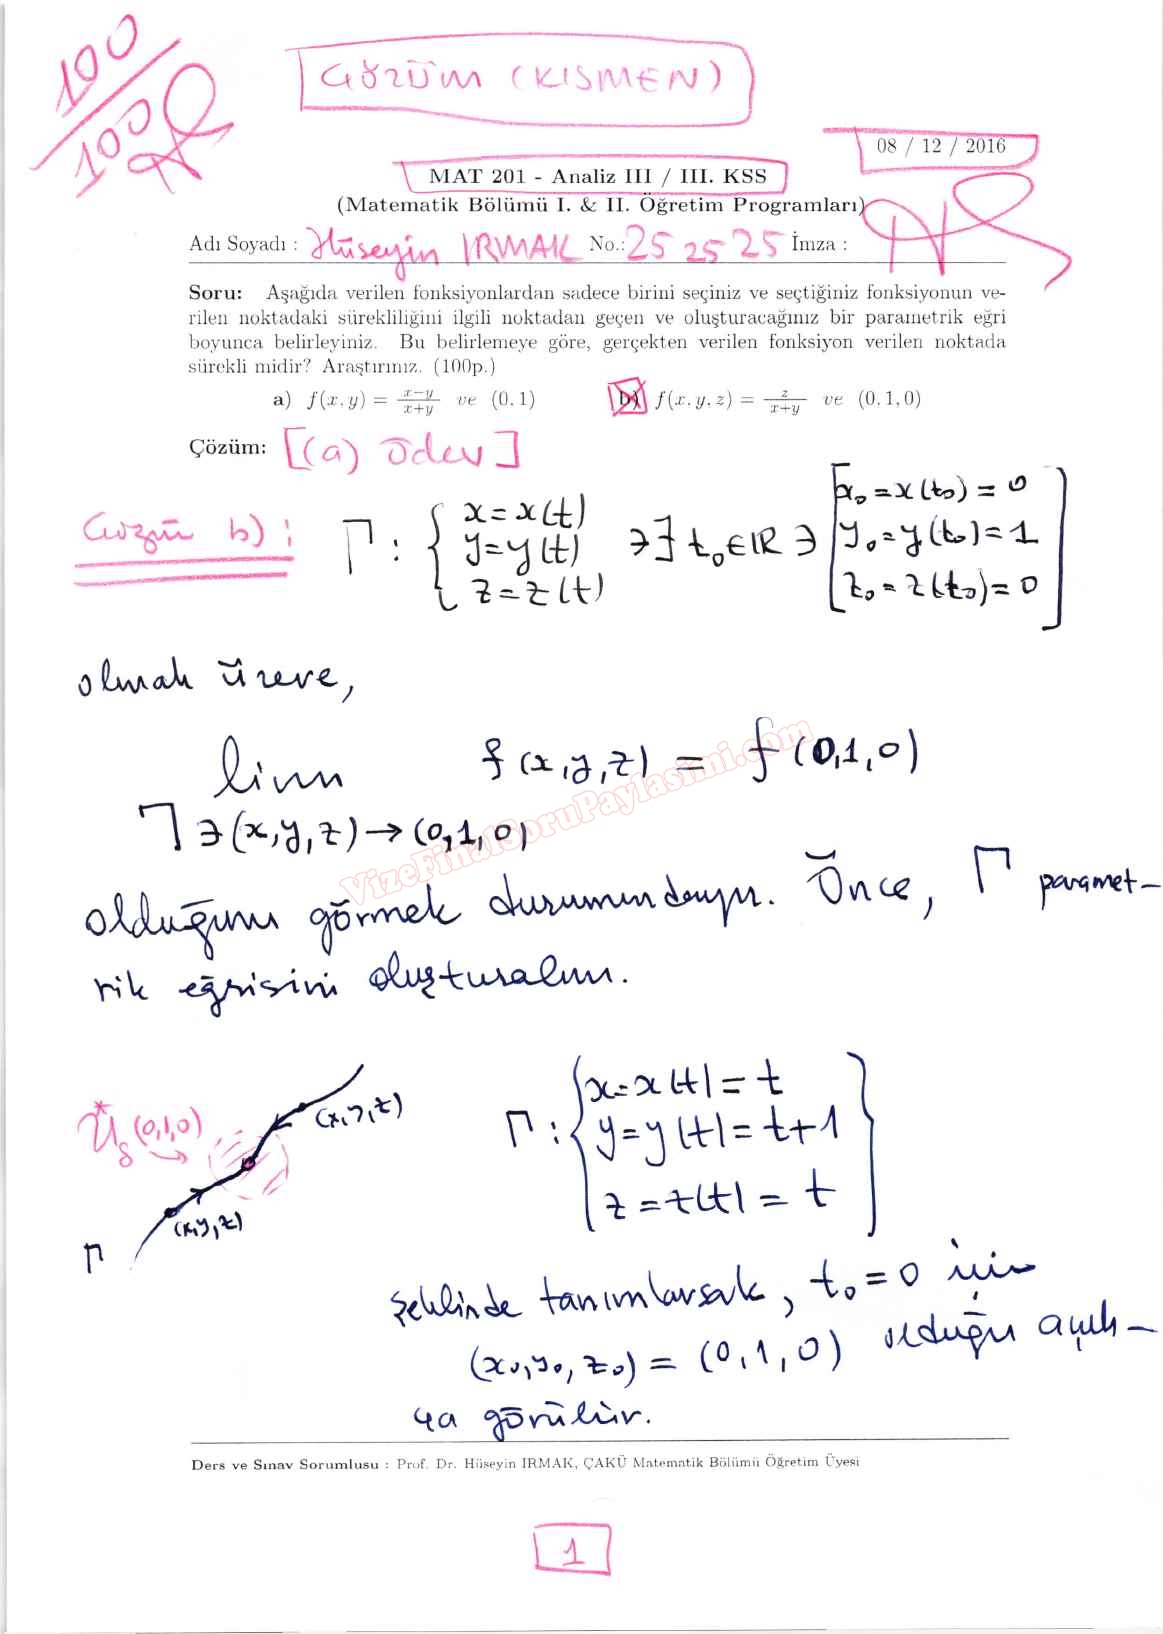 100
100
ÇÖZÜM (KISMEN)
08 / 12 / 2016
MAT 201 - Analiz III / III. KSS
(Matematik Bölümü I. & II. Öğretim Programları)
Adı Soyadı : Hüseyin IRMAK No.: 25 25 25 İmza :
Soru: Aşağıda verilen fonksiyonlardan sadece birini seçiniz ve seçtiğiniz fonksiyonun ve-
rilen noktadaki sürekliliğini ilgili noktadan geçen ve oluşturacağınız bir parametrik eğri
boyunca belirleyiniz. Bu belirlemeye göre, gerçekten verilen fonksiyon verilen noktada
sürekli midir? Araştırınız. (100p.)
a) f(x, y) = \frac{x-y}{x+y} ve (0, 1) b) f(x, y, z) = \frac{z}{x+y} ve (0, 1, 0)
Çözüm: [(a) ödev]
Çözüm b) : Γ : { x = x(t) y = y(t) z = z(t) ∋ ∃ t₀ ∈ IR ∋ [ x₀ = x(t₀) = 0 y₀ = y(t₀) = 1 z₀ = z(t₀) = 0 ]
olmak üzere,
lim f(x, y, z) = f(0, 1, 0)
Γ ∋ (x, y, z) → (0, 1, 0)
VizeFinalSoruPaylasimi.com
olduğunu görmek durumundayız. Önce, Γ paramet-
rik eğrisini oluşturalım.
U*δ(0,1,0)
(x, y, z)
(x, y, z)
Γ
Γ : { x = x(t) = t
y = y(t) = t+1
z = z(t) = t }
şeklinde tanımlarsak, t₀ = 0 için
(x₀, y₀, z₀) = (0, 1, 0) olduğu açık-
ça görülür.
Ders ve Sınav Sorumlusu : Prof. Dr. Hüseyin IRMAK, ÇAKÜ Matematik Bölümü Öğretim Üyesi
1